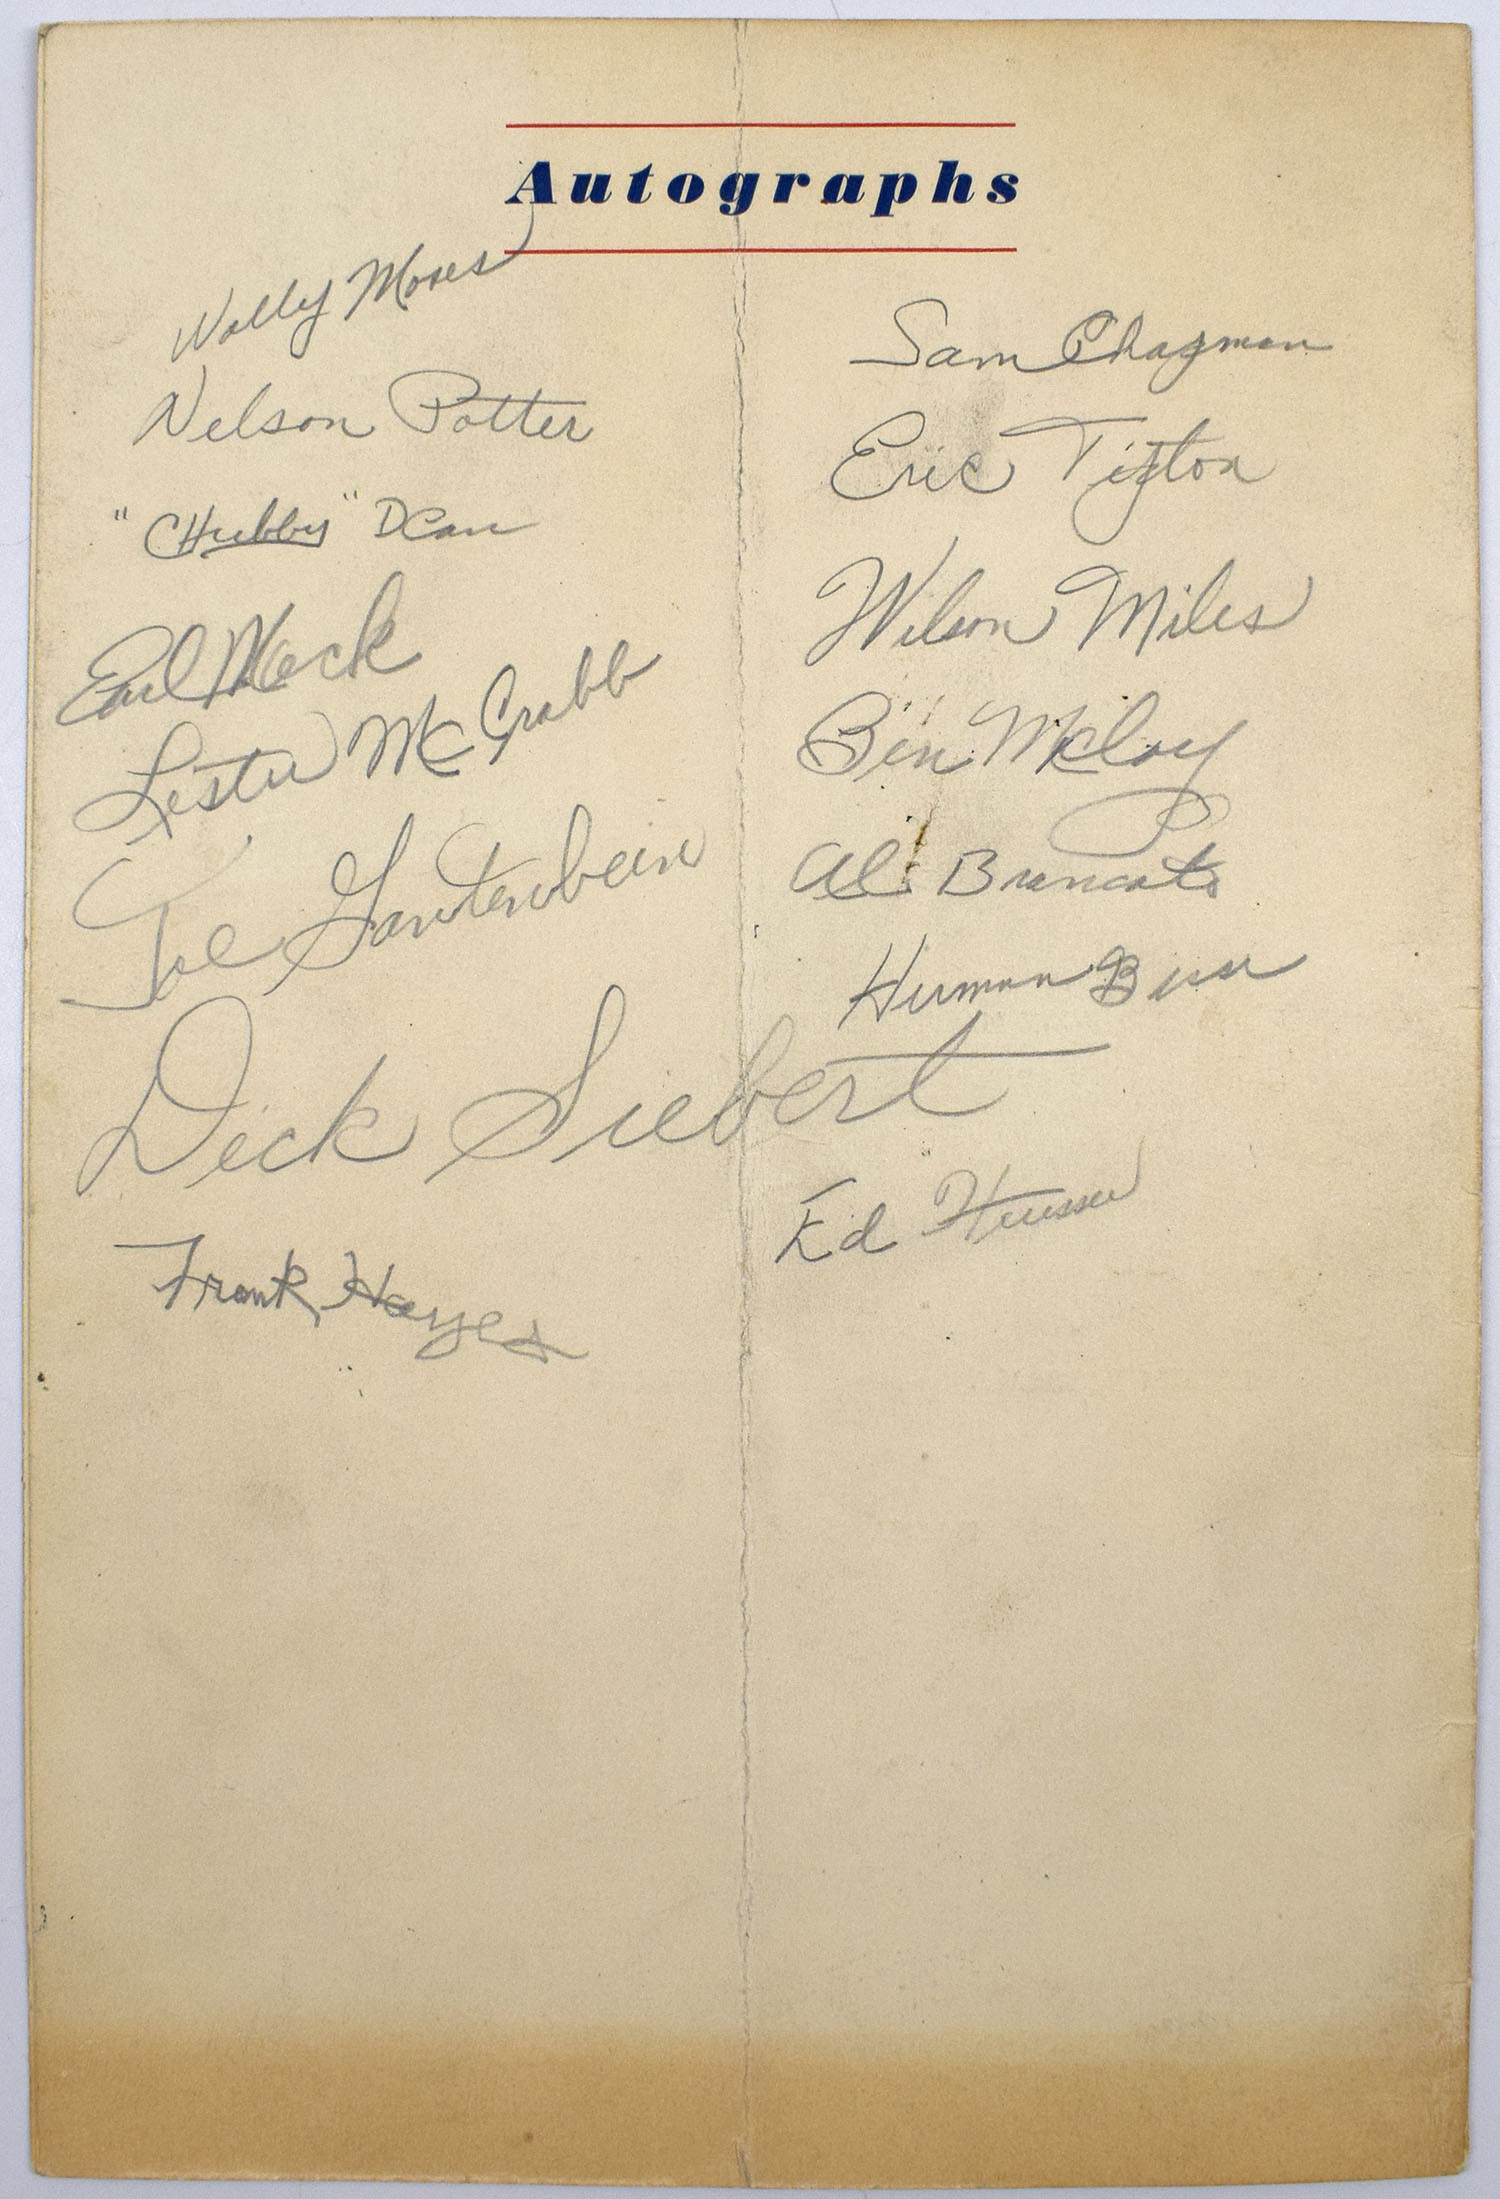 Autographs
Wally Moses
Nelson Potter
"Chubby" Dean
Earl Mack
Lester McCrabb
Joe Gantenbein
Dick Siebert
Frank Hayes
Sam Chapman
Eric Tipton
Wilson Miles
Ben McCoy
Al Brancato
Herman Besse
Ed Heusser